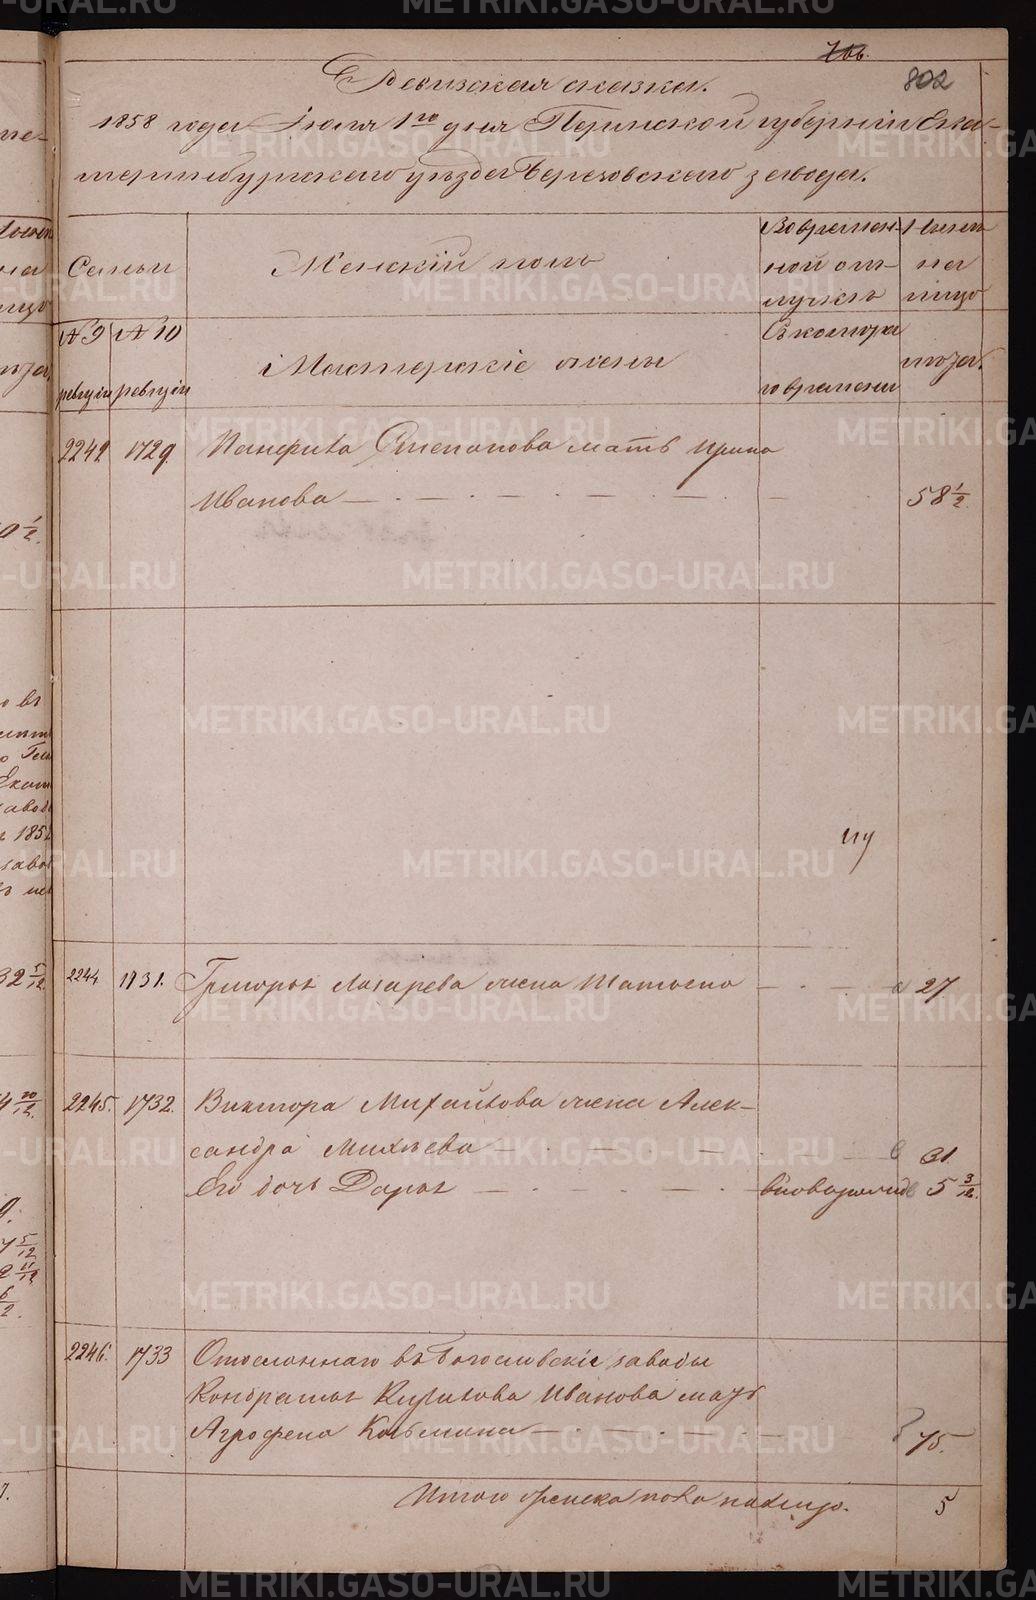 766.
802
Ревизская сказка.
1858 года Іюля 1го дня Пермской губерніи Ека-
теринбургскаго уѣзда Березовскаго завода.
Семьи
Женскій полъ
Во времен-
ной от-
лучкѣ
Нынѣ
на
лицо
№ 9
ревизіи
№ 10
ревизіи
Мастерскіе жены
Съ котора
го времени
лѣта.
2242 1729. Панфила Степанова мать Ирина
Иванова — 58 1/2.
2244 1731. Григорья Лазарева жена Татьяна — 27
2245. 1732. Виктора Михайлова жена Алек-
сандра Михѣева — 31.
Его дочь Дарья — 5 3/12.
2246. 1733 Отосланнаго въ Богословскіе заводы
Кондратья Иванова мать
Агрофена Козьмина — 75.
Итого женска пола налицо. 5
METRIKI.GASO-URAL.RU